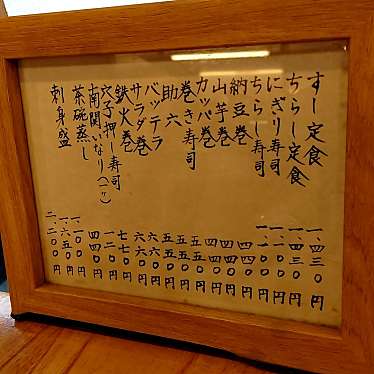 すし定食
ちらし定食
にぎり寿司
ちらし寿司
納豆巻
山芋巻
カッパ巻
巻き寿司
助六
バッテラ
サラダ巻
鉄火巻
穴子押し寿司
南関いなり(一ヶ)
茶碗蒸し
刺身盛
一、四三〇円
一、四三〇円
一、一〇〇円
一、一〇〇円
四四〇円
四四〇円
四四〇円
五五〇円
五五〇円
五五〇円
六六〇円
六六〇円
七七〇円
四四〇円
一、一〇〇円
一、六五〇円
二、二〇〇円